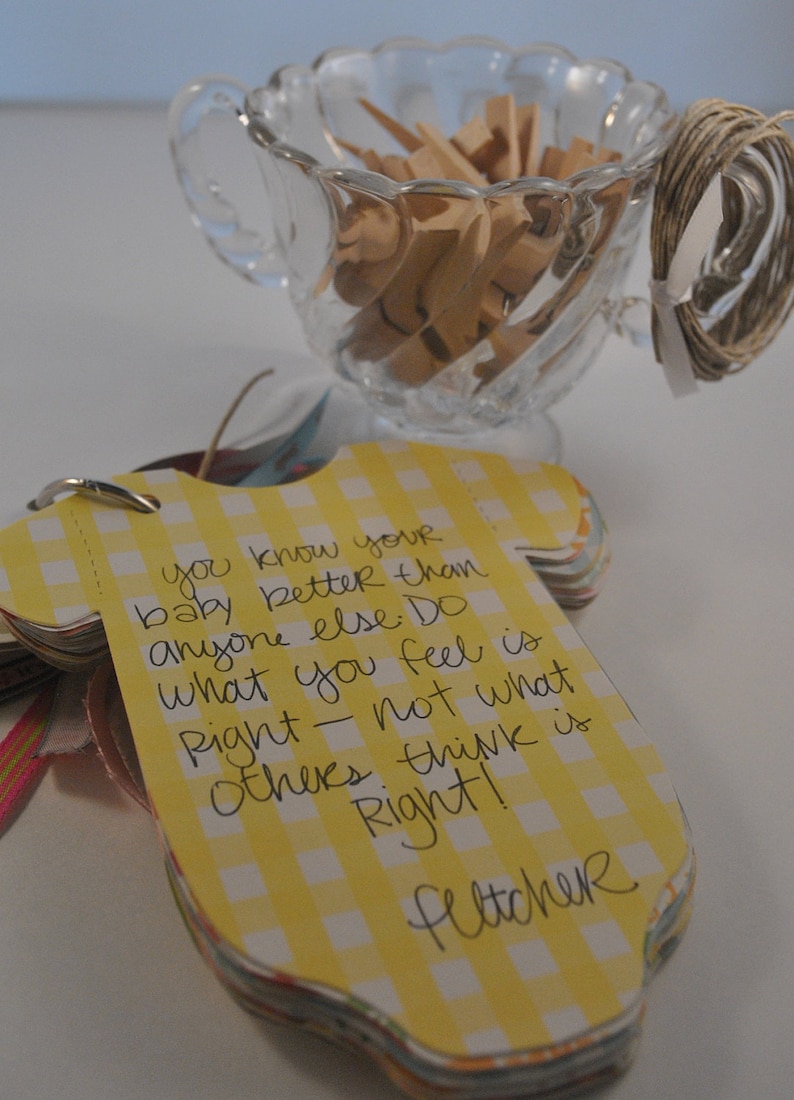 you know your
baby better than
anyone else. Do
what you feel is
Right — not what
others think is
Right!
fletcher